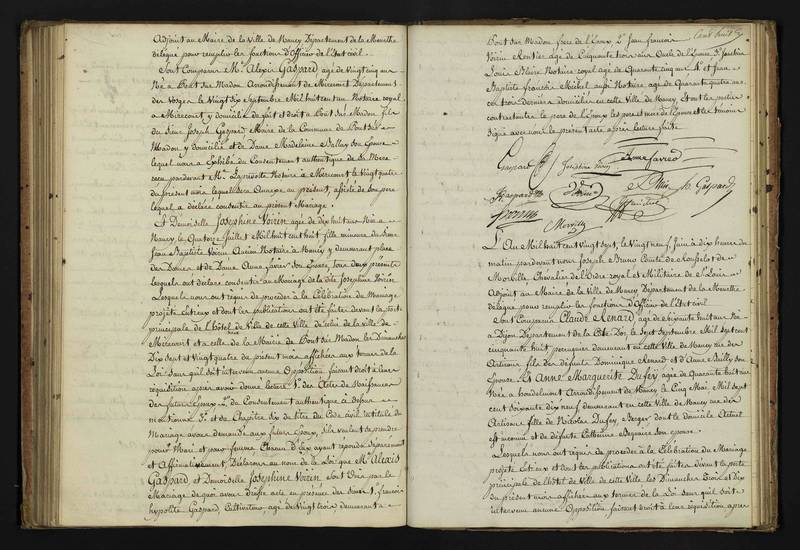 Adjoint au Maire de la Ville de Nancy Département de la Meurthe
délégué pour remplir les fonctions d'Officier de l'état civil.
Sont Comparus Mr Alexis Gaspard, agé de vingt cinq ans
Né à Pont sur Madon arrondissement de Mirecourt Département
des Vosges le vingt dix Septembre Mil huit cent un Notaire royal
à Mirecourt y domicilié de fait et droit à Pont sur Madon fils
du Sieur Joseph Gaspard Maire de la Commune de Pont sur
Madon y domicilié et de Dame Madeleine Ballay son épouse
lequel nous a exhibé du Consentement authentique de sa Mère
reçu pardevant Me Laprevote Notaire à Mirecourt le vingt quatre
du présent mois lequel sera Annexé au présent, assisté de son père
lequel a déclaré consentir au présent Mariage.
Et Demoiselle Josephine Voirin agée de dix huit ans Née à
Nancy, le quatorze Juillet Mil huit cent huit fille mineure du Sieur
Jean Baptiste Voirin Ancien Notaire à Nancy y demeurant place
des Dames et de Dame Anne son épouse, tous deux présents
lesquels ont déclaré consentir au Mariage de la dite Josephine Voirin
Lesquels nous ont requis de procéder à la Célébration du Mariage
projeté entr'eux et dont les publications ont été faites devant la porte
principale de l'hôtel de Ville de cette Ville de celui de la ville de
Mirecourt et à celle de la Mairie de Pont sur Madon les Dimanches
Dix sept et vingt quatre du présent mois affichées aux termes de la
Loi sans qu'il soit intervenu aucune Opposition faisant droit à leur
réquisition après avoir donné lecture 1° des Actes de Naissances
des futurs Epoux 2° du Consentement authentique ci dessus
mentionné 3° et du Chapitre Six du titre du Code civil intitulé du
Mariage avons demandé aux futurs Epoux, s'ils veulent se prendre
pour Mari et pour femme, Chacun d'Eux ayant répondu Séparément
et Affirmativement, Déclarons au nom de la loi que Mr Alexis
Gaspard et Demoiselle Josephine Voirin sont Unis par le
Mariage de quoi avons dressé acte en présence des Sieurs 1° francois
hypolite Gaspard, Cultivateur agé de vingt trois demeurant à
Cent huit
Pont sur Madon frere de l'Epoux 2° Jean francois
Voirin Rentier agé de Cinquante trois ans Oncle de l'Epouse 3° Joachin
Louis Notaire royal agé de Quarante cinq ans 4° et Jean
Baptiste francois Michel aussi Notaire, agé de Quarante quatre ans
ces trois derniers domiciliés en cette Ville de Nancy et ont les parties
contractantes le pere de l'époux les pere et mere de l'épouse et les témoins
signé avec nous le présent acte après lecture faite.
Gaspard Josephine Voirin
Gaspard Voirin h Gaspard
Morville
L'An Mil huit cent vingt sept, le vingt neuf Juin à dix heures du
matin pardevant nous Joseph Bruno Comte de Rousselot de
Morville, Chevalier de l'Ordre royal et Militaire de St Louis
Adjoint au Maire de la Ville de Nancy Département de la Meurthe
délégué pour remplir les fonctions d'Officier de l'Etat civil.
Sont Comparus Claude Renard agé de soixante huit ans Né
à Dijon Département de la Côte Dor, le sept Septembre Mil sept cent
cinquante huit, perruquier demeurant en cette Ville de Nancy rue des
Artisans fils des défunts Dominique Renard et d'Anne son
épouse. Et Anne Marguerite Dufey agée de Quarante huit ans
Née à houdelmont Arrondissement de Nancy le Cinq Mai Mil sept
cent soixante dix neuf demeurant en cette Ville de Nancy rue des
Artisans, fille de Nicolas Dufey, Berger dont le domicile Actuel
est inconnu et de défunte Catherine son épouse.
Lesquels nous ont requis de procéder à la Célébration du Mariage
projeté entr'eux et dont les publications ont été faites devant la porte
principale de l'hôtel de Ville de cette Ville les Dimanches trois et dix
du présent mois affichées aux termes de la Loi sans qu'il soit
intervenu aucune Opposition faisant droit à leur réquisition après